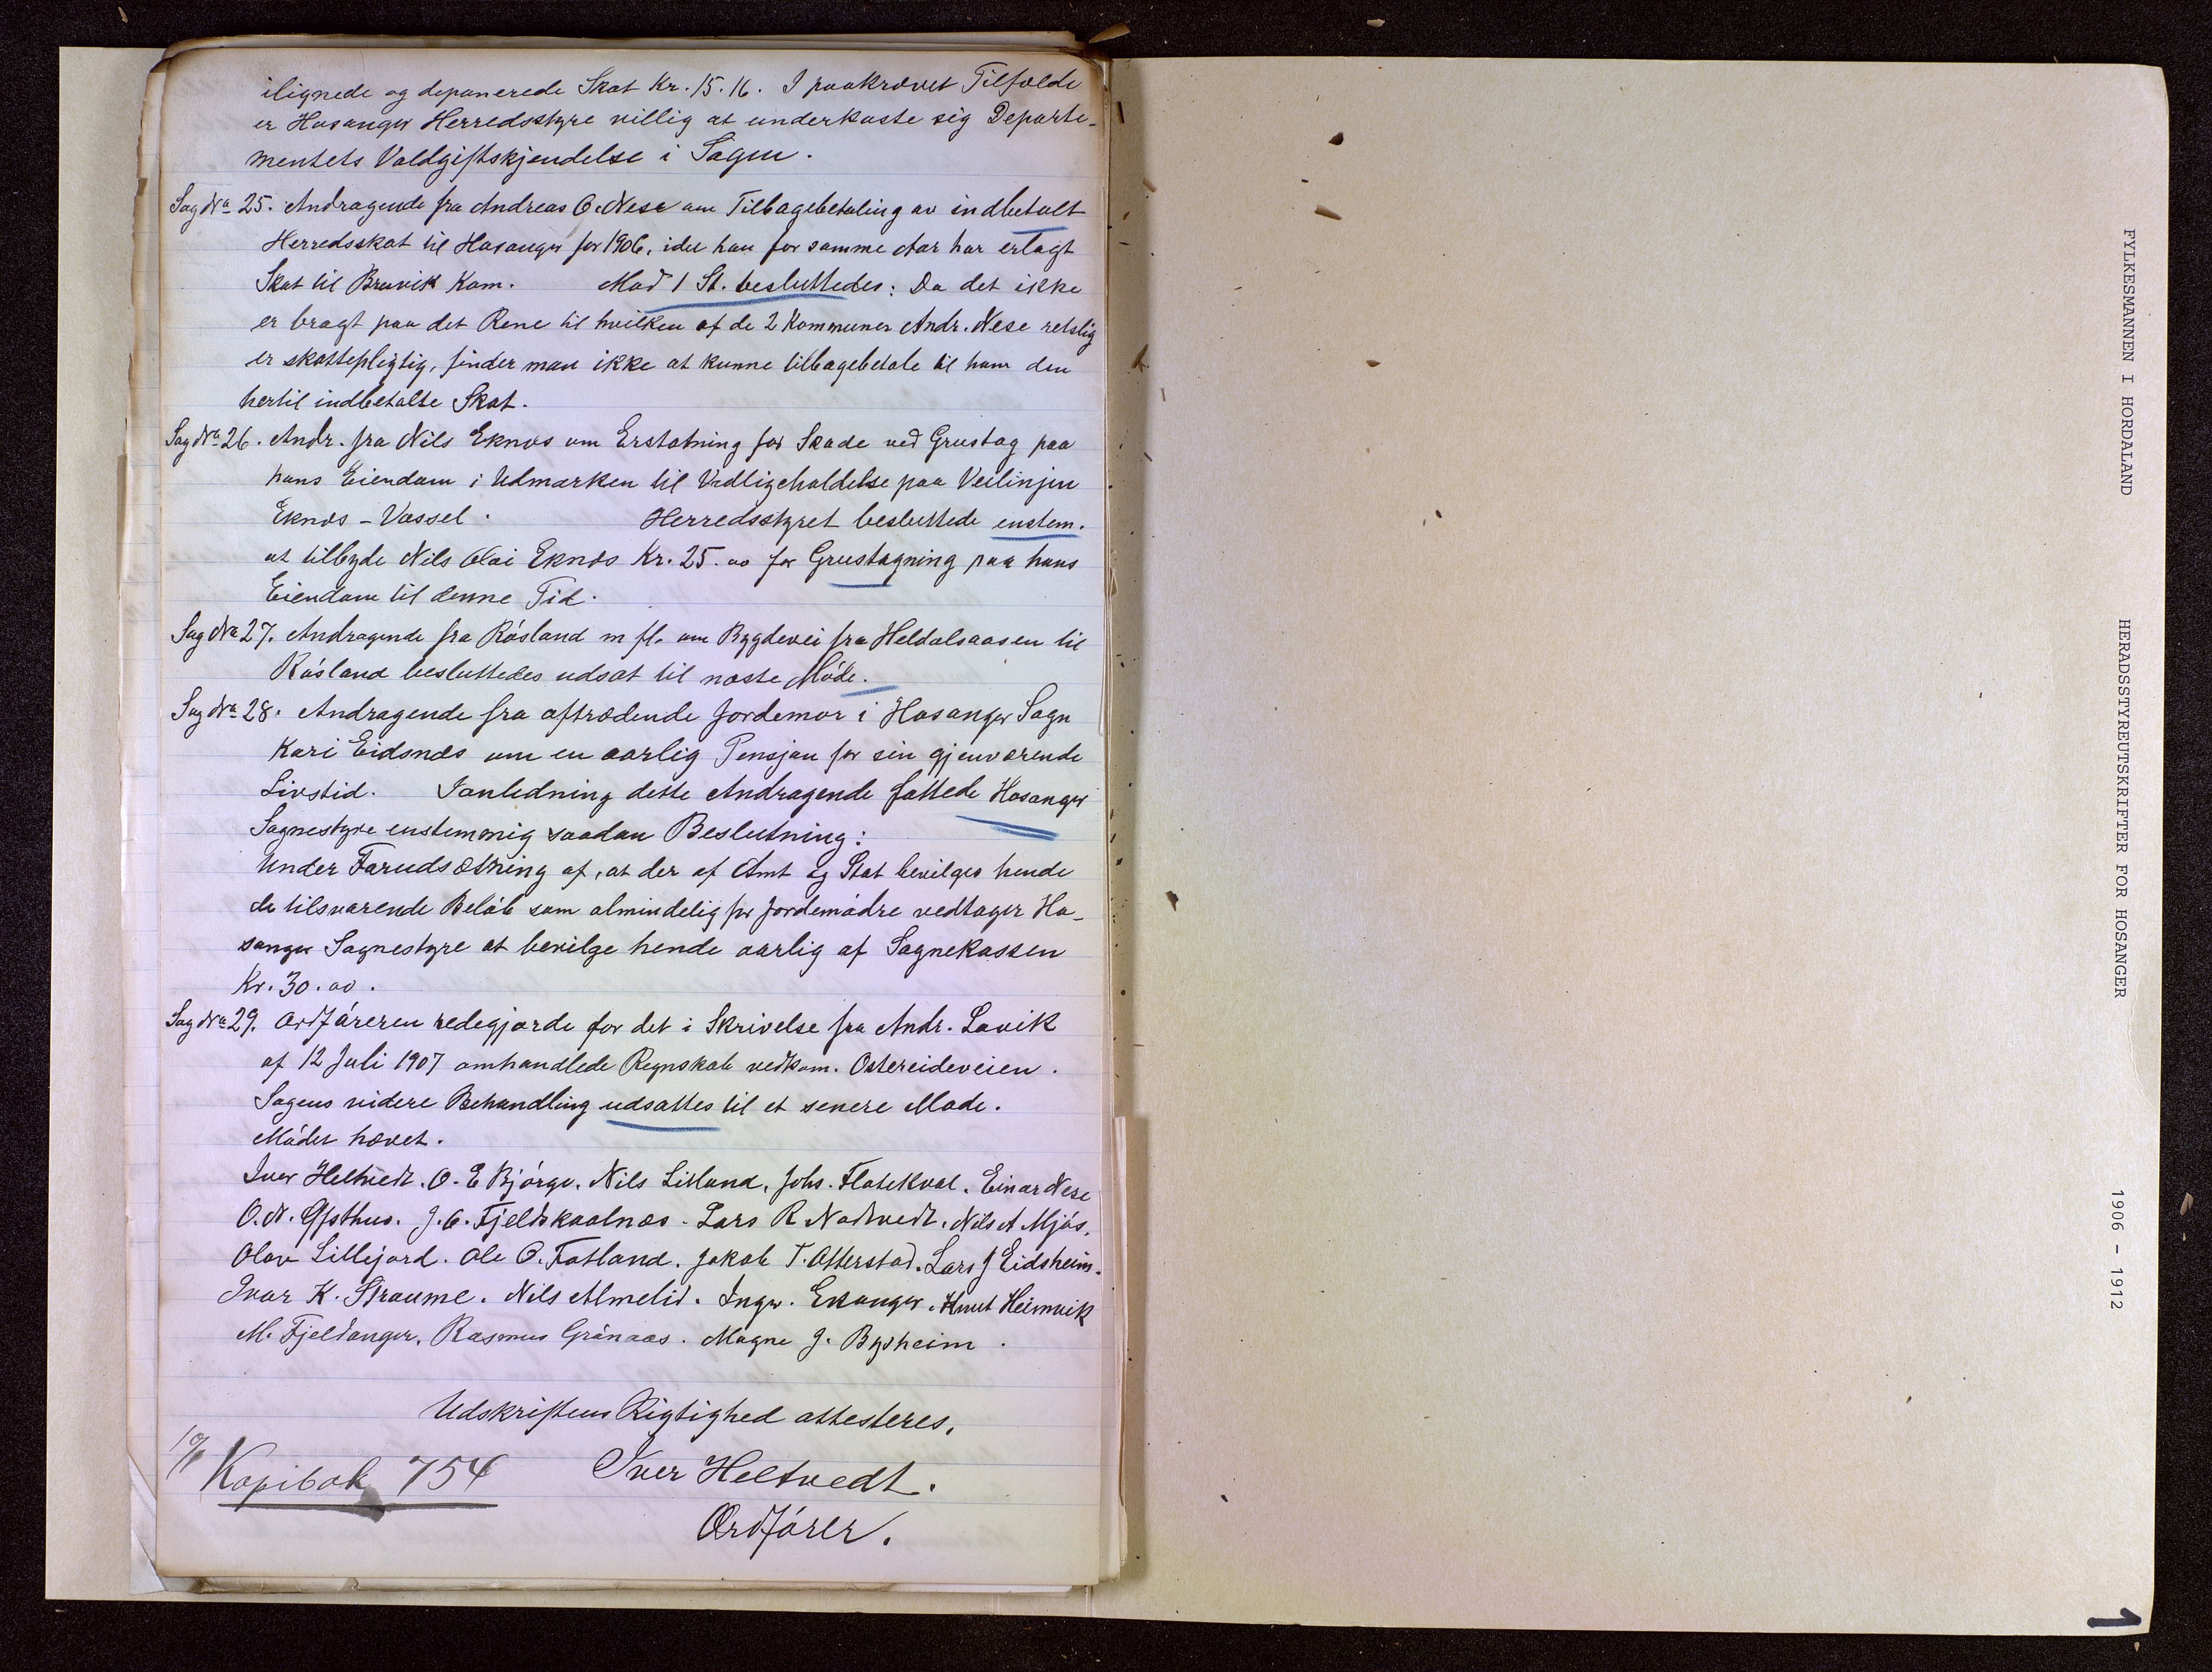 ilignede og deponerede Skat Kr. 15.16. I paakrævet Tilfælde
er Hosanger Herredsstyre villig at underkaste sig Departe-
mentets Voldgiftskjendelse i Sagen.
Sag No 25. Andragende fra Andreas O. Nese om Tilbagebetaling av indbetalt
Herredsskat til Hosanger for 1906, idet han for samme Aar har erlagt
Skat til Bruvik Kom. Mod 1 St. besluttedes: Da det ikke
er bragt paa det Rene til hvilken af de 2 Kommuner Andr. Nese retslig
er skattepligtig, finder man ikke at kunne tilbagebetale til ham den
hertil indbetalte Skat.
Sag No 26. Andr. fra Nils Eknæs om Erstatning for Skade ved Grustag paa
hans Eiendom i Udmarken til Vedligeholdelse paa Veilinjen
Eknæs - Vassel. Herredsstyret besluttede enstem.
at tilbyde Nils Olai Eknæs Kr. 25.00 for Grustagning paa hans
Eiendom til denne Tid.
Sag No 27. Andragende fra Røsland m fl. om Bygdevei fra Heldalsaasen til
Røsland besluttedes udsat til næste Møde.
Sag No 28. Andragende fra aftrædende Jordemor i Hosanger Sogn
Kari Eidsnæs om en aarlig Pensjon for sin gjenværende
Livstid. Ianledning dette Andragende fattede Hosanger
Sognestyre enstemmig saadan Beslutning:
Under Forudsætning af, at der af Amt og Stat bevilges hende
de tilsvarende Beløb som almindelig for Jordemødre vedtager Ho-
sanger Sognestyre at bevilge hende aarlig af Sognekassen
Kr. 30.00.
Sag No 29. Ordføreren redegjorde for det i Skrivelse fra Andr. Lavik
af 12 Juli 1907 omhandlede Regnskab vedkom. Ostereideveien.
Sagens videre Behandling udsattes til et senere Møde.
Mødet hævet.
Iver Heltvedt. O. E Bjørge. Nils Litland. Johs. Flatekval. Einar Nese
O. N. Gjsthus. J. O. Fjeldskaalnæs. Lars R Nodtvedt. Nils A Mjøs.
Olav Lillejord. Ole O. Fotland. Jakob T. Otterstad. Lars J Eidsheim.
Ivar K. Straume. Nils Almelid. Ingv. Ekanger. Knut Heimvik
M. Fjeldanger. Rasmus Grønaas. Magne J. Bysheim.
Udskriftens Rigtighed attesteres.
Kopibok 754 Iver Heltvedt.
Ordfører.
FYLKESMANNEN I HORDALAND HERADSSTYREUTSKRIFTER FOR HOSANGER 1906 - 1912
1